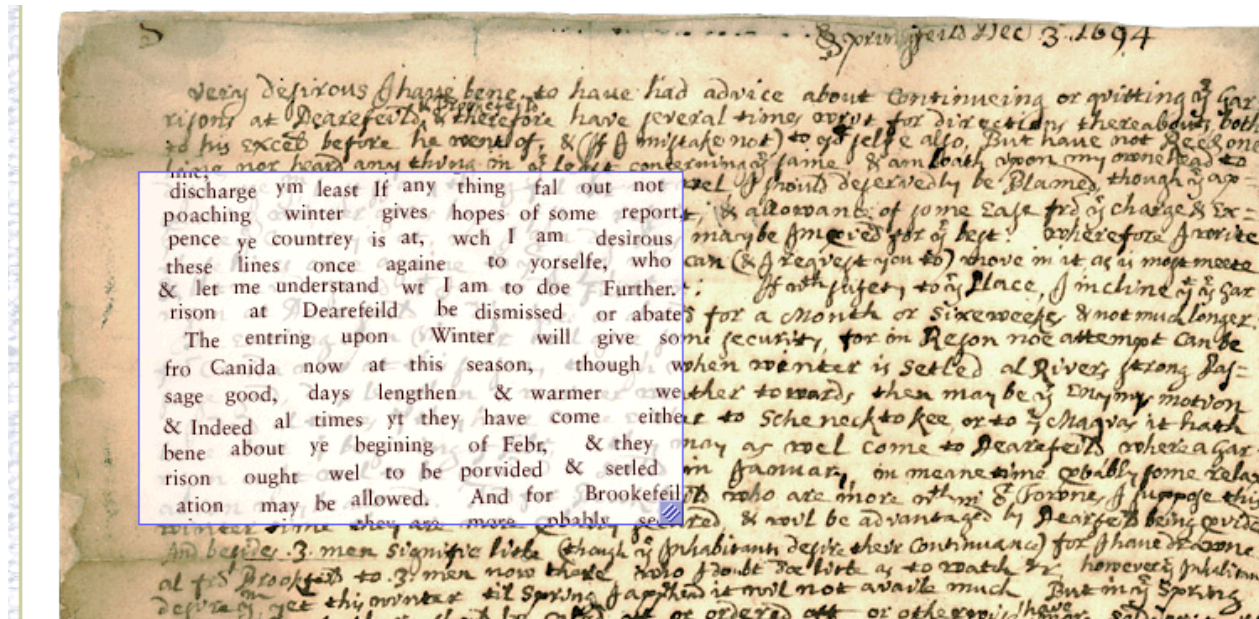 Springfeild Dec 3. 1694
very desirous I have bene, to have had advice about Continueing or quitting ye Gar
risons at Dearefeild, & therefore have several times wryt for directions thereabouts, both
to his Excey before he went of, & (If I mistake not) to yor selfe also, But have not Rec one
line, nor heard any thing in ye least concerning ye same & am loath upon my owne head to
discharge ym least If any thing fal out not wel I should deservedly be Blamed, though ye ap=
poaching winter gives hopes of some report, & allowance of some Ease fro ye charge & Ex=
pence ye countrey is at, wch I am desirous may be Improved for ye best: wherefore I write
these lines once againe to yorselfe, who can (& I request you to) move in it as is most meete
& let me understand wt I am to doe Further. : If wth safety to ye Place, I incline yt ye Gar
rison at Dearefeild be dismissed or abated for a Month or Sixe weekes, & not much longer
The entring upon Winter will give some security, for in Reson noe attempt Can be
fro Canida now at this season, though when winter is Setled al Rivers strong Pas=
sage good, days lengthen & warmer weather towards, then may be ye Enymys motion
& Indeed al times yt they have come either to Schenecktokee or to ye Maquas it hath
bene about ye begining of Febr, & they may as wel Come to Dearefeild where a Gar
rison ought wel to be porvided & setled in January, in meane time pbably some relax
ation may be allowed. And for Brookefeild who are more wthin or owne, I suppose this
winter time they are more pbably secured, & wil be advantaged by Dearfeild being
And besides .3. men signifie litle (though ye Inhabitants desire their Continuance) for I have drawne
al fro Brookfeild to .3. men now there who I doubt doe litle as to watch &c however ye Inhabitants
desire ym, yet this winter til Spring I apphend it wil not availe much But in ye Spring